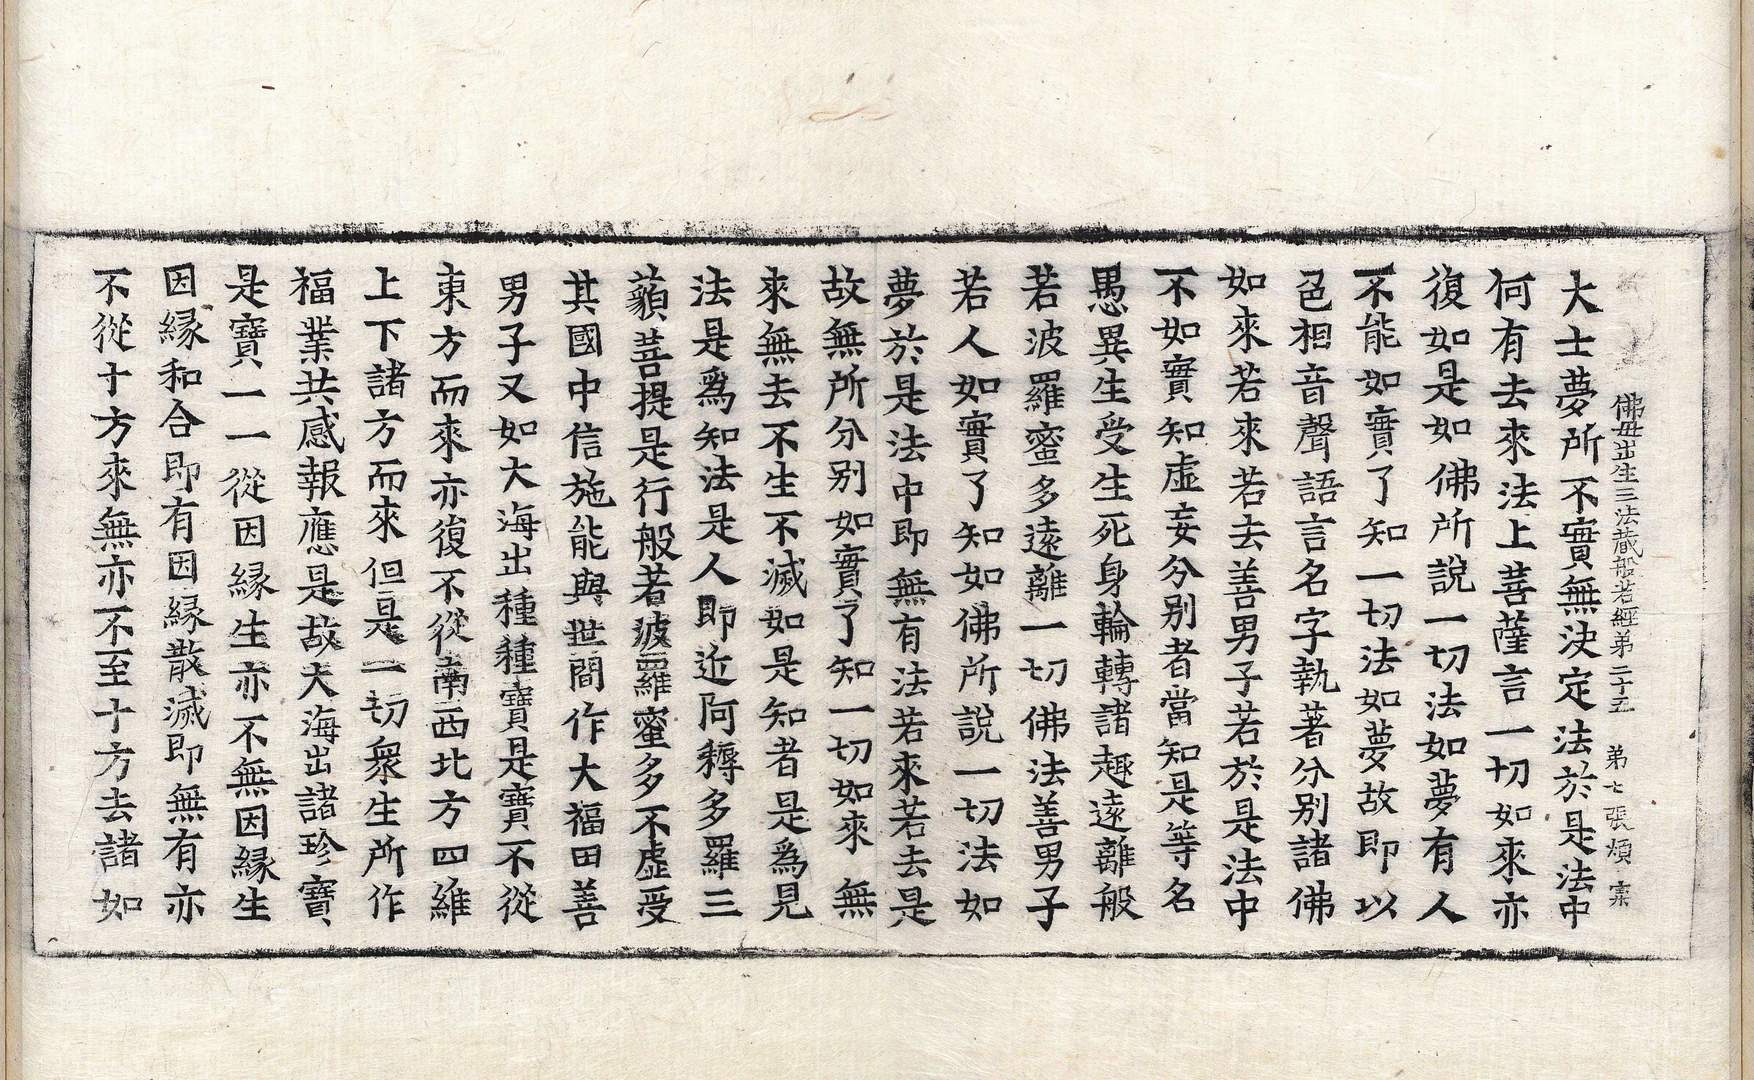 佛母出生三法藏般若經第二十五　第七張　煩　寀
大士夢所不實無決定法於是法中
何有去來法上菩薩言一切如來亦
復如是如佛所說一切法如夢有人
不能如實了知一切法如夢故即以
色相音聲語言名字執著分別諸佛
如來若來若去善男子若於是法中
不如實知虛妄分別者當知是等名
愚異生受生死身輪轉諸趣遠離般
若波羅蜜多遠離一切佛法善男子
若人如實了知如佛所說一切法如
夢於是法中即無有法若來若去是
故無所分別如實了知一切如來無
來無去不生不滅如是知者是為見
法是爲知法是人即近阿耨多羅三
藐菩提是行般若波羅蜜多不虛受
其國中信施能與世間作大福田善
男子又如大海出種種寶是寶不從
東方而來亦復不從南西北方四維
上下諸方而來但是一切衆生所作
福業共感報應是故大海出諸珍寶
是寶一一從因緣生亦不無因緣生
因緣和合即有因緣散滅即無有亦
不從十方來無亦不至十方去諸如